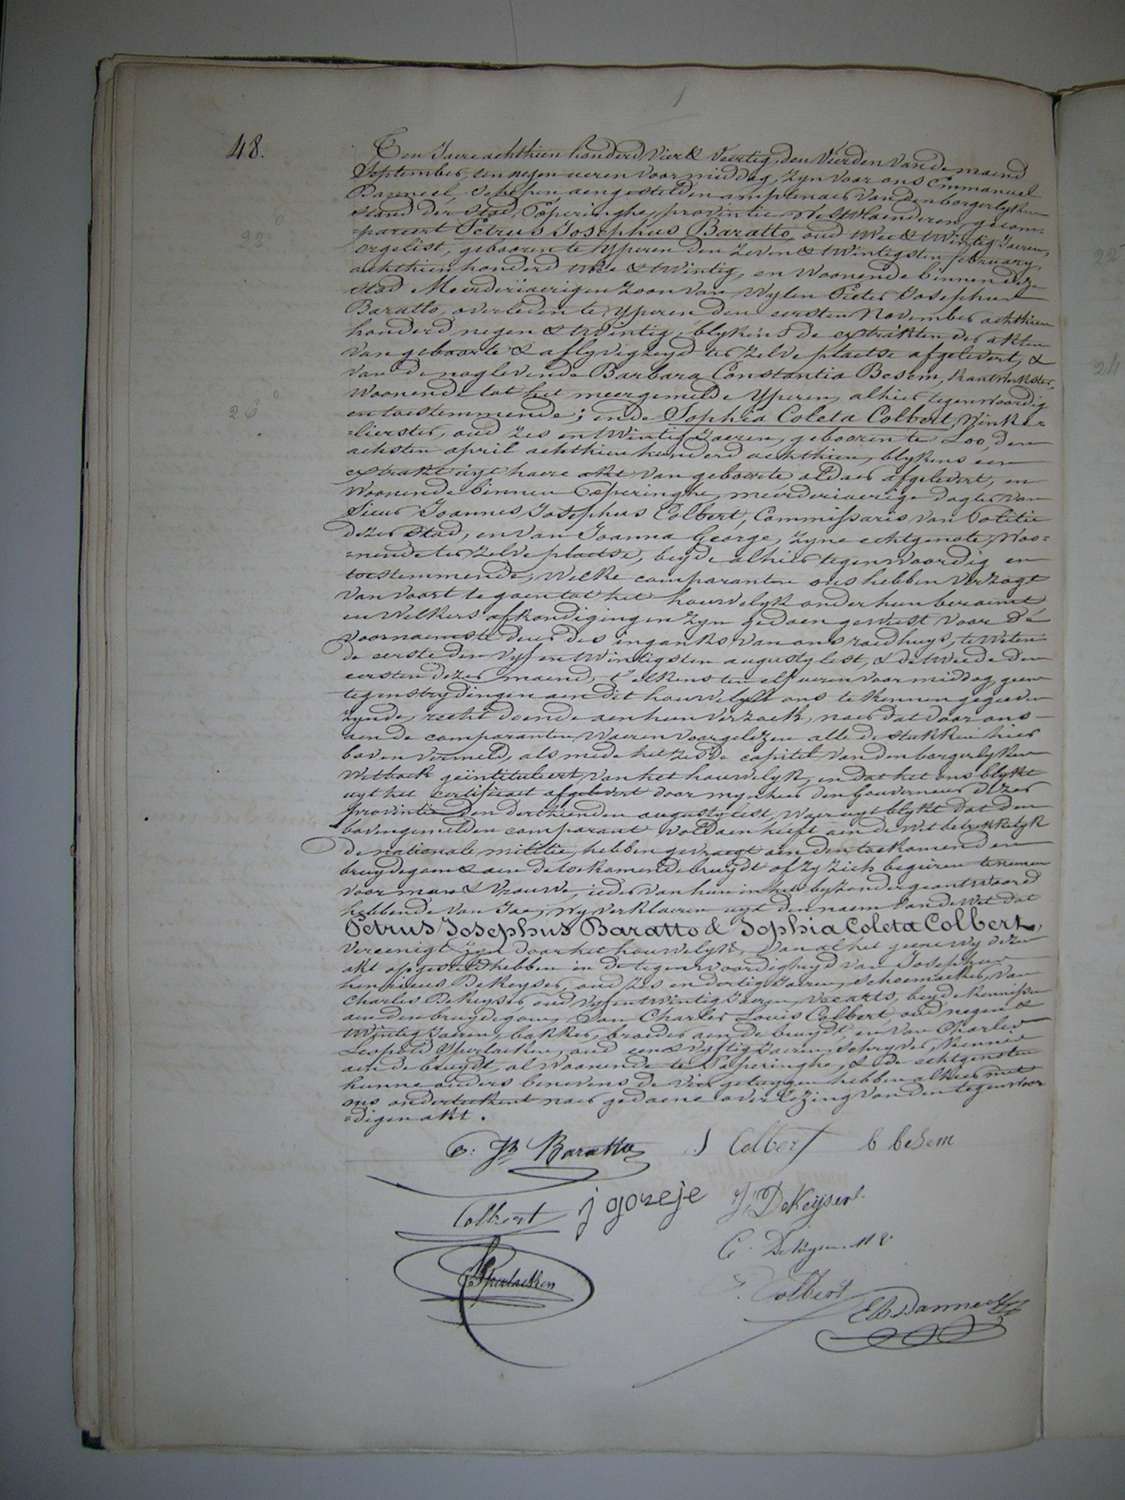 48.
Ten Jaere achthien honderd Vier & Veertig, den Vierden van de maend
September ten negen ueren voor middag, zyn voor ons Emmanuel
schepen aengestelden amptenaer van den borgerlyken
stand der Stad Poperinghe, provintie Westvlaenderen, gecom-
-pareert Petrus Josephus Baratto, oud twee & twintig Jaeren,
orgelist, gebooren te Yperen den zeven & twintigsten february
achthien honderd twee & twintig, en Woonende binnen deze
stad Meerderjaerigen zoon van Wylen Pieter Josephus
Baratto, overleden te Yperen den eersten November achthien
honderd negen & twintig, blykens de extrakten der akten
van geboorte & aflyvigheyd ter zelve plaetse afgelevert, &
van de naglevende Barbara Constantia Besem, kantwerkster,
Woonende tot het meergemelde Yperen, alhier tegenwoordig
en toestemmende; en de Sophia Coleta Colbert, Winke-
-lierster, oud zes en twintig Jaeren, gebooren te Loo, den
achsten april achthien honderd achthien, blykens een
extrakt uyt haere akt van geboorte aldaer afgelevert, en
Woonende binnen Poperinghe, meerderjaerige dogter van
Sieur Joannes Josephus Colbert, Commissaris van Politie
dezer stad, en van Joanna George, zyne echtgenote, Woo-
-nende ter zelve plaetse, beyde alhier tegenwoordig en
toestemmende, Welke comparanten ons hebben verzogt
van voort te gaen tot het houwelyk onder hun beraemt
en Welkers afkondigingen zyn gedaen geweest voor de
voornaemste deur des inganks van ons raedhuys, te Weten
de eerste den vyf en twintigsten augusty lest, & de tweede den
eersten dezer maend, t'elkens ten elf ueren voor middag, geen
tegenstrydingen aen dit houwelyk ons te kennen gegeven
zynde, recht doende aen hun verzoek, naer dat door ons
aen de comparanten Waeren voorgelezen alle de stukken hier
boven vermeld, als mede het zesde capitel van den borgerlyken
Wetboek geïntituleert, van het houwelyk, en dat het ons blykt
uyt het certificaet afgelevert door mynheer den Gouverneur dezer
provintie den derthienden augusty lest, Waer uyt blykt dat den
bovengemelden comparant voldaen heeft aen de Wet betrekkelyk
de nationale militie, hebben gevraegt aen den toekomenden
bruydegom & aen de toekomende bruydt of zy zich begeeren te nemen
voor man & Vrouwe, ieder van hun in het byzonder geantwoord
hebbende van Jae, Wy verklaeren uyt den naem van de Wet dat
Petrus Josephus Baratto & Sophia Coleta Colbert,
vereenigt zyn door het houwelyk, Van al het geene wy dezen
akt opgesteld hebben in de tegenwoordigheyd van Josephus
Henricus Dekeyser, oud zes en dertig Jaeren, schoenmaeker, van
Charles Dekeyser oud vyf en twintig Jaeren, beyde kennissen
aen den bruydegom, Van Charles Louis Colbert, oud negen &
twintig Jaeren, bakker, broeder aen de bruydt, en van Charles
Leopold Yperlaecken, oud een & vyftig Jaeren,
aen de bruydt, al woonende te Poperinghe, & de echtgenoten
hunne ouders benevens de vier getuygen hebben alhier met
ons onderteekent naer gedaene overlezing van den tegenwoor
-digen akt.
Baratto S Colbert b besem
Colbert j goreje J, DeKeyser
Yperlaecken
Colbert